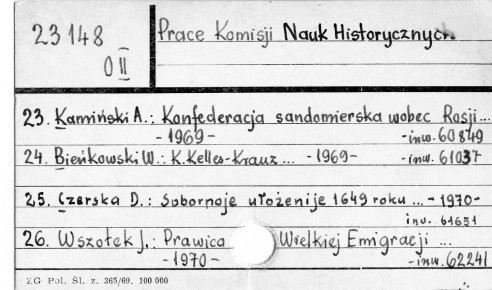 23148
O II
Prace Komisji Nauk Historycznych.
23. Kamiński A.: Konfederacja sandomierska wobec Rosji...
- 1969 - - inw. 60849
24. Bieńkowski W.: K. Kelles-Krauz ... - 1969 - - inw. 61037
25. Czerska D.: Sobornoje ułożenije 1649 roku ... - 1970 -
inw. 61651
26. Wszołek J.: Prawica Wielkiej Emigracji ...
- 1970 - - inw. 62241
ZG Pol. Śl. z. 365/69. 100 000